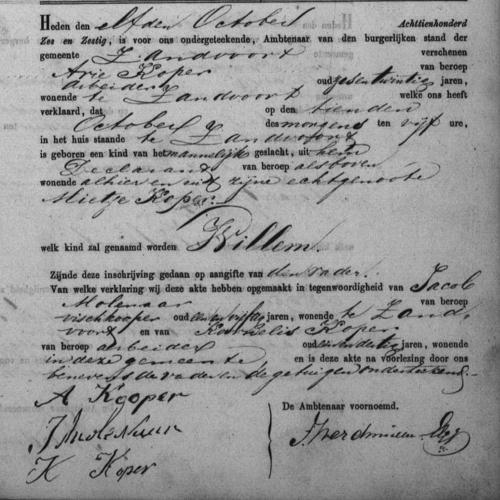 Heden den elfden October Achttienhonderd
Zes en Zestig, is voor ons ondergeteekende, Ambtenaar van den burgerlijken stand der
gemeente Zandvoort verschenen
Arie Koper van beroep
arbeider oud zesentwintig jaren,
wonende te Zandvoort welke ons heeft
verklaard, dat op den tienden
October des morgens ten vijf ure,
in het huis staande te Zandvoort
is geboren een kind van het mannelijk geslacht, uit hem
Declarant van beroep als boven
wonende alhier en uit zijne echtgenoote
Mietje Koper
welk kind zal genaamd worden Willem.
Zijnde deze inschrijving gedaan op aangifte van den vader.
Van welke verklaring wij deze akte hebben opgemaakt in tegenwoordigheid van Jacob
Molenaar van beroep
vischkooper oud jaren, wonende te Zand,
voort en van Kornelis Koper
van beroep arbeider oud jaren, wonende
in deze gemeente en is deze akte na voorlezing door ons
benevens de vader en de getuigen onderteekend.
A Kooper
De Ambtenaar voornoemd.
J Molenaar
K Koper